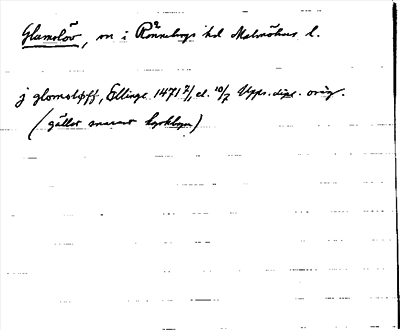 Glamslöv, sn i Rönnebergs hd Malmöhus l.
j glomsløff, Ellinge 1471 2/1 el. 10/7 Upps. dipl. orig.
(gäller snarast kyrkbyn)